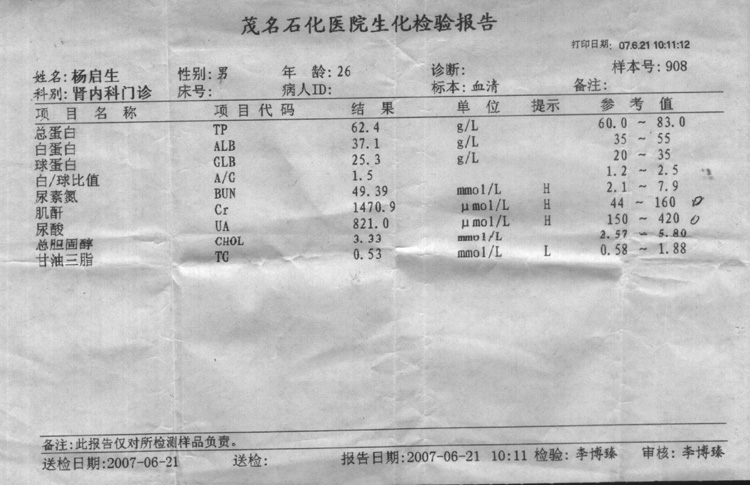 茂名石化医院生化检验报告
打印日期: 07.6.21 10:11:12
姓名:杨启生 性别:男 年 龄:26 诊断: 样本号:908
科别:肾内科门诊 床号: 病人ID: 标本:血清 备注:
项 目 名 称 项 目 代 码 结 果 单 位 提示 参 考 值
总蛋白 TP 62.4 g/L 60.0 ~ 83.0
白蛋白 ALB 37.1 g/L 35 ~ 55
球蛋白 GLB 25.3 g/L 20 ~ 35
白/球比值 A/G 1.5 1.2 ~ 2.5
尿素氮 BUN 49.39 mmol/L H 2.1 ~ 7.9
肌酐 Cr 1470.9 μmol/L H 44 ~ 160
尿酸 UA 821.0 μmol/L H 150 ~ 420
总胆固醇 CHOL 3.33 mmol/L 2.57 ~ 5.80
甘油三脂 TG 0.53 mmol/L L 0.58 ~ 1.88
备注:此报告仅对所检测样品负责。
送检日期:2007-06-21 送检: 报告日期:2007-06-21 10:11 检验: 李博臻 审核: 李博臻